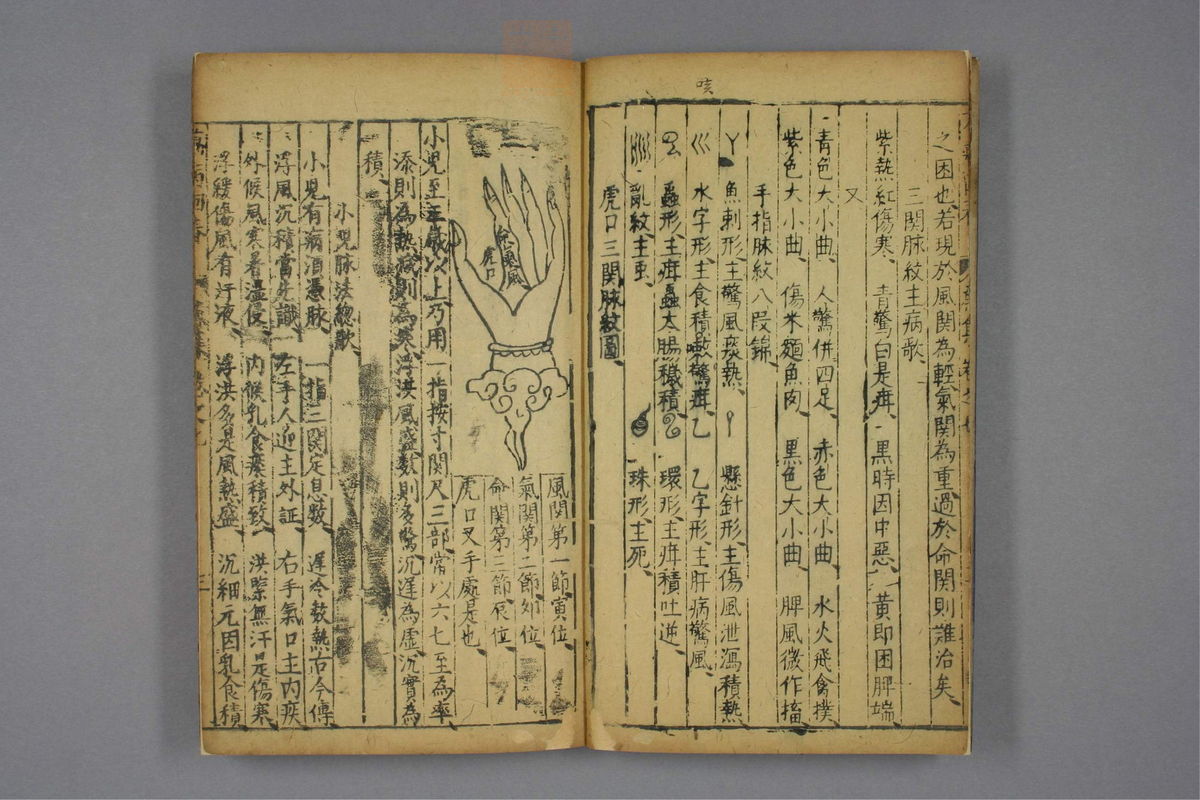 咳
之困也若現於風関為輕氣關為重過於命関則難治矣
三関脉紋主病歌
紫熱紅傷寒 青驚白是疳 黒時因中惡 黃即困脾端
又
青色大小曲 人驚併四足 赤色大小曲 水火飛禽撲
紫色大小曲 傷米麵魚肉 黒色大小曲 脾風微作搐
手指脉紋八段錦
魚刺形主驚風痰熱 懸針形主傷風泄瀉積熱
水字形主食積 驚疳 乙字形主肝病驚風
蟲形主疳蟲大腸穢積 環形主疳積吐逆
亂紋主虫 珠形主死
虎口三関脉紋圖
命氣風
虎口
風関第一節寅位
氣関第二節卯位
命関第三節辰位
虎口叉手處是也
小兒至三歲以上乃用一指按寸関尺三部常以六七至為率
添則為熱減則為寒浮洪風盛数則多驚沉遲為虛沉實為
積
小兒脉法總歌
小兒有病須憑脉 一指三関定息数 遲冷数熱古今傳
浮風沉積當先識 左手人迎主外証 右手氣口主内疾
外候風寒暑濕侵 内候乳食痰積致 洪緊無汗是傷寒
浮緩傷風有汗液 浮洪多是風熱盛 沉細元因乳食積
三